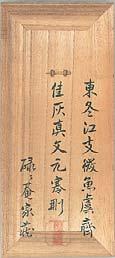 東冬江支微魚虞齊
佳灰真文元寒刪
碌々菴家蔵